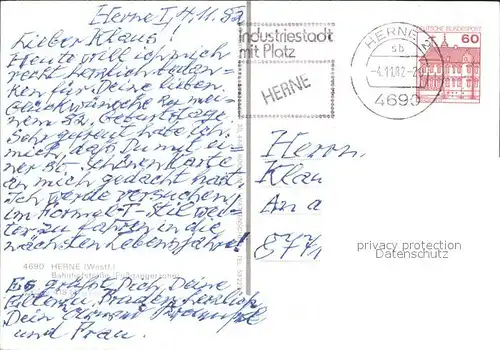 Herne 1, 4.11.82
Lieber Klaus!
Heute will ich mich
recht herzlich bedan-
ken für Deine lieben
Glückwünsche zu mei-
nem 52. Geburtstage.
Sehr gefreut habe ich
mich, daß Du mit ei-
ner so schönen Karte
an mich gedacht hast.
Ich werde versuchen,
im Normal-T-Stil wei-
ter zu fahren in die
nächsten Lebensjahre!
4690 HERNE (Westf.)
Bahnhofstraße (Fußgängerzone)
Es grüßt Dich, Deine
Eltern u. Bruder herzlich
Dein
und Frau.
Industriestadt
mit Platz
HERNE
HERNE 1
sb
-4.11.82-2
4690
DEUTSCHE BUNDESPOST
60
Herrn
Klau
An a
privacy protection
Datenschutz